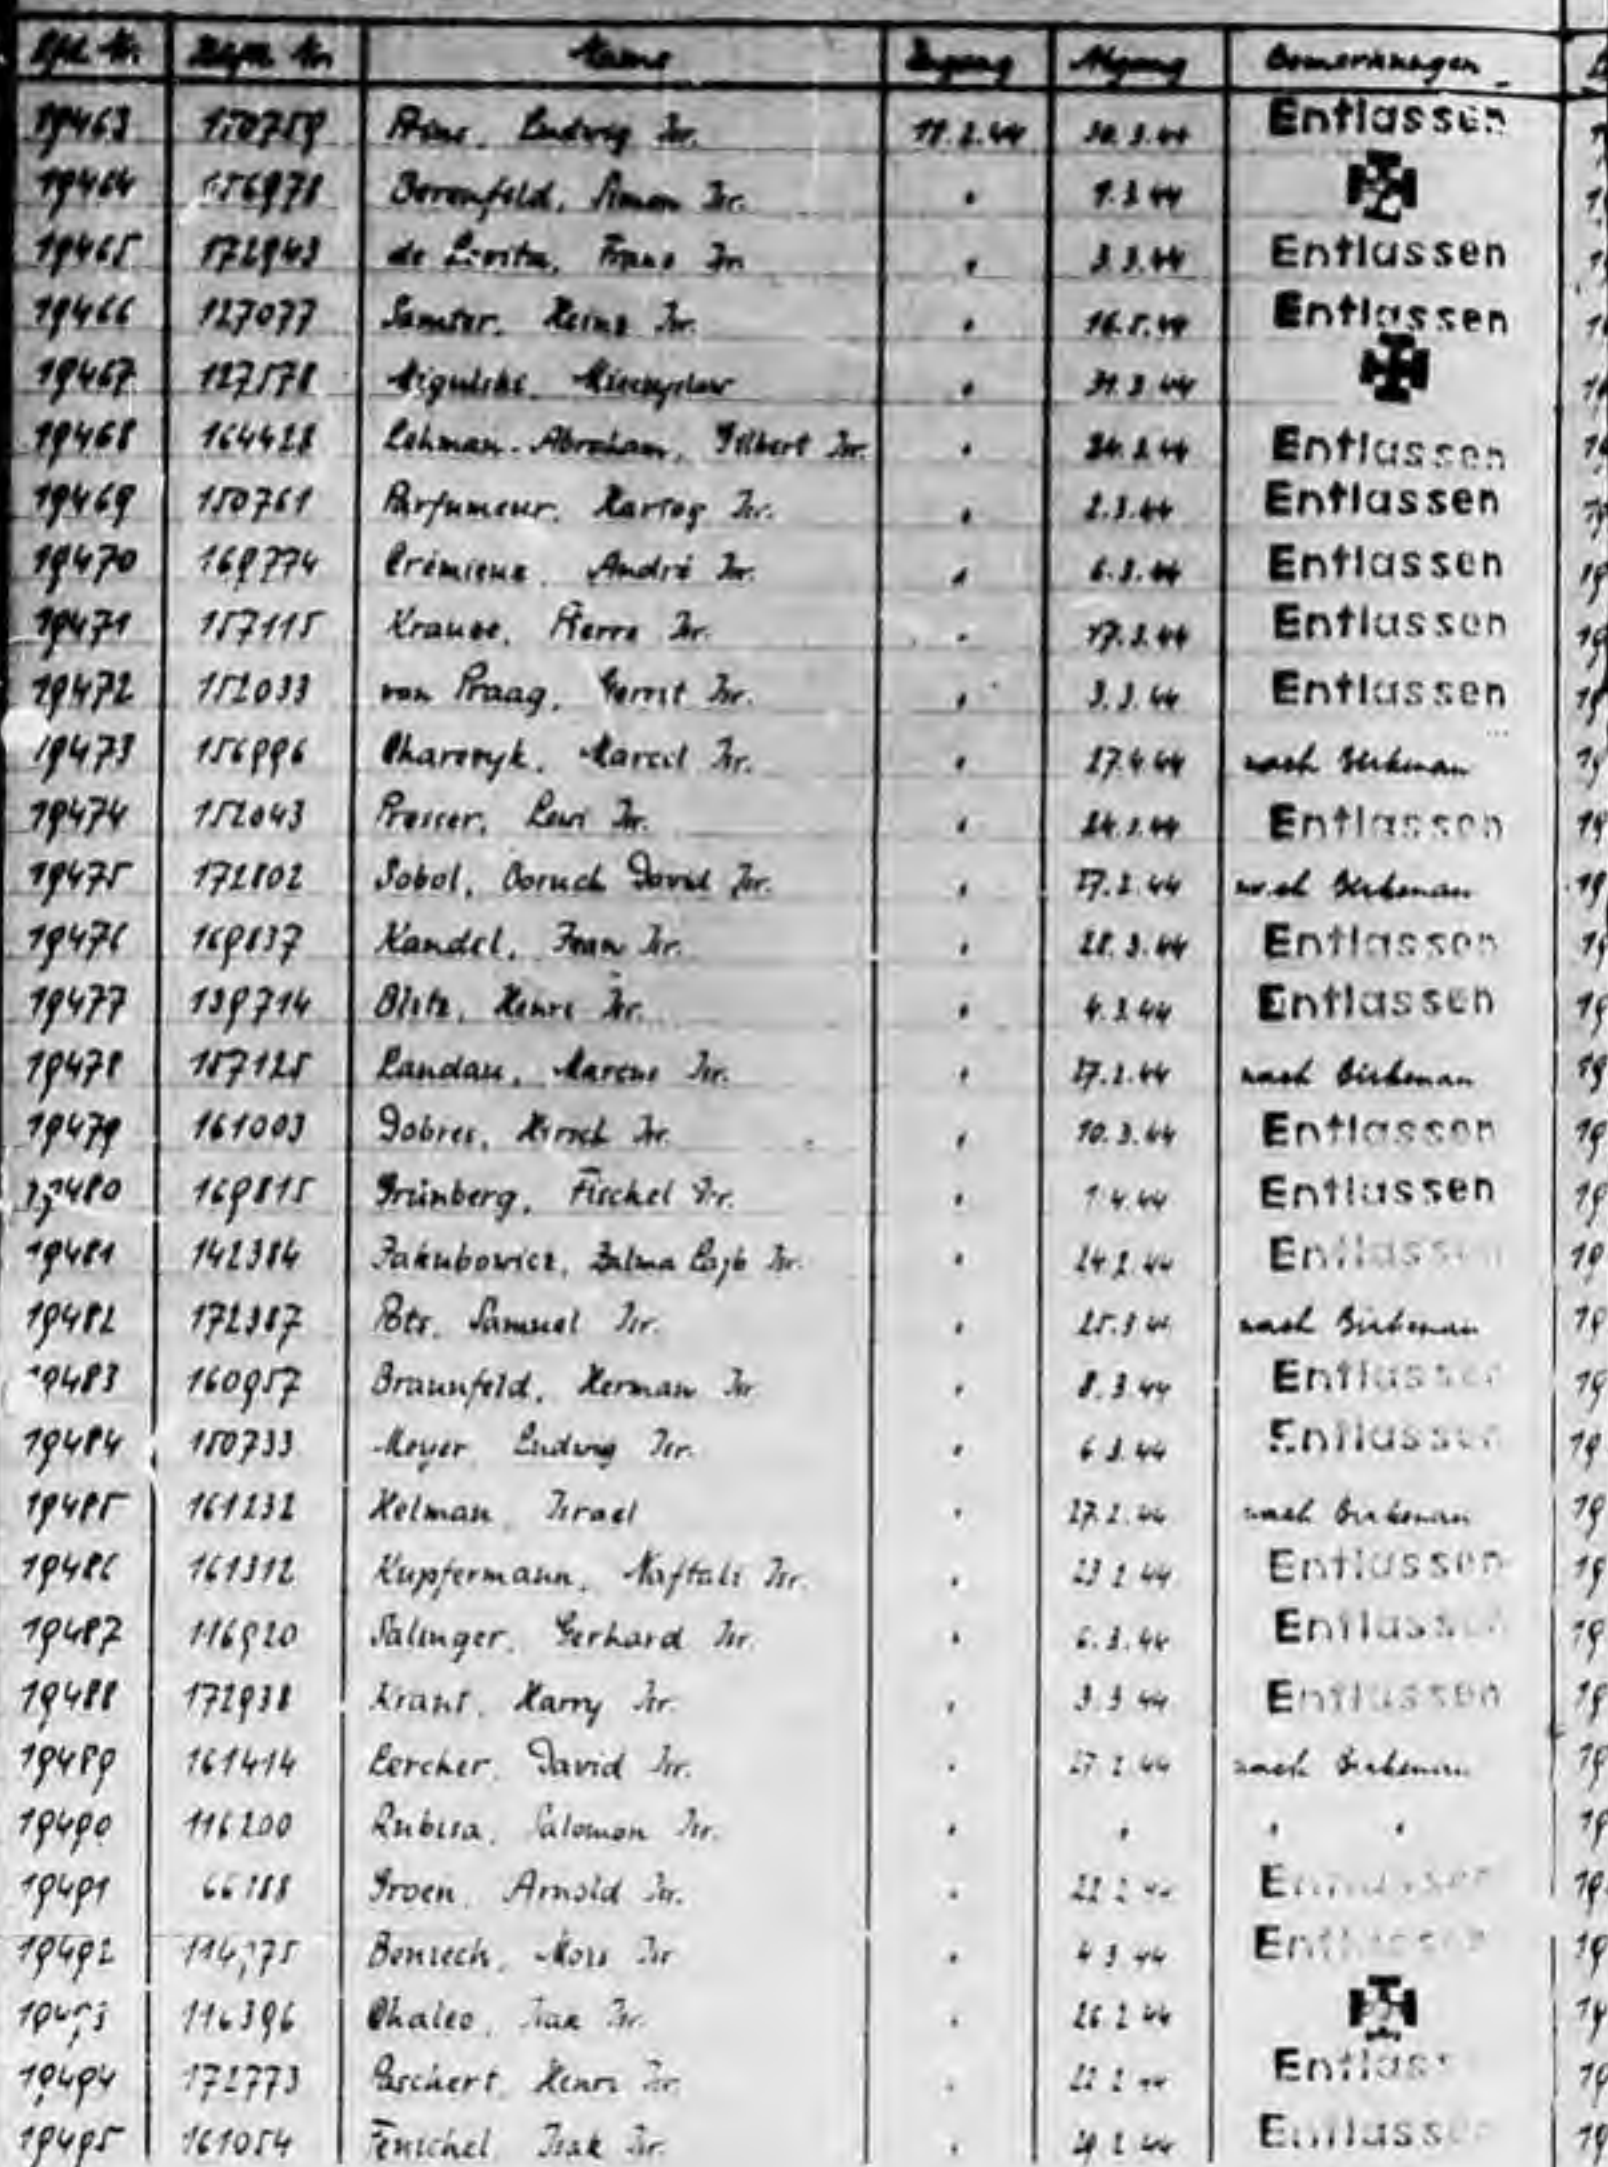 Lfd. Nr. Name Zugang Abgang Bemerkungen
19463 150759 Prins, Ludwig Isr. 18.2.44 30.3.44 Entlassen
19464 156978 Berenfeld, Simon Isr. " 9.3.44
19465 172943 de Levita, Frans Isr. " 3.3.44 Entlassen
19466 127077 Samter, Heinz Isr. " 16.5.44 Entlassen
19467 127578 " 31.3.44
19468 164428 Lehman-Abraham, Gilbert Isr. " 24.2.44 Entlassen
19469 150761 Parfumeur, Hartog Isr. " 2.3.44 Entlassen
19470 169774 Crémieux, André Isr. " 6.3.44 Entlassen
19471 157115 Krause, Pierre Isr. " 17.3.44 Entlassen
19472 152033 van Praag, Gerrit Isr. " 3.3.44 Entlassen
19473 156996 Marcel Isr. " 27.4.44 nach Birkenau
19474 152043 Presser, Levi Isr. " 24.2.44 Entlassen
19475 172802 Sobol, Boruch David Isr. " 27.2.44 nach Birkenau
19476 169837 Kandel, Jean Isr. " 28.3.44 Entlassen
19477 139714 Blitz, Henri Isr. " 4.3.44 Entlassen
19478 157125 Landau, Marcus Isr. " 27.2.44 nach Birkenau
19479 161003 Dobres, Hirsch Isr. " 10.3.44 Entlassen
19480 169815 Grünberg, Fischel Isr. " 1.4.44 Entlassen
19481 142384 Jakubowicz, Zalma Lajb Isr. " 24.2.44 Entlassen
19482 172387 Pots, Samuel Isr. " 25.3.44 nach Birkenau
19483 160957 Braunfeld, Herman Isr. " 8.3.44 Entlassen
19484 150733 Meyer, Ludwig Isr. " 6.3.44 Entlassen
19485 161232 Helman, Israel " 27.2.44 nach Birkenau
19486 161312 Kupfermann, Naftali Isr. " 23.2.44 Entlassen
19487 116920 Salinger, Gerhard Isr. " 6.3.44 Entlassen
19488 172938 Krant, Harry Isr. " 3.3.44 Entlassen
19489 161414 Lercher, David Isr. " 27.2.44 nach Birkenau
19490 116200 Rubisa, Salomon Isr. " " " "
19491 66188 Groen, Arnold Isr. " 22.2.44 Entlassen
19492 Benrech, Mois Isr. " 4.3.44 Entlassen
19493 116396 Chaleo, Isak Isr. " 26.2.44
19494 172773 Henri Isr. " 22.2.44 Entlassen
19495 161054 Fenichel, Isak Isr. " 29.2.44 Entlassen